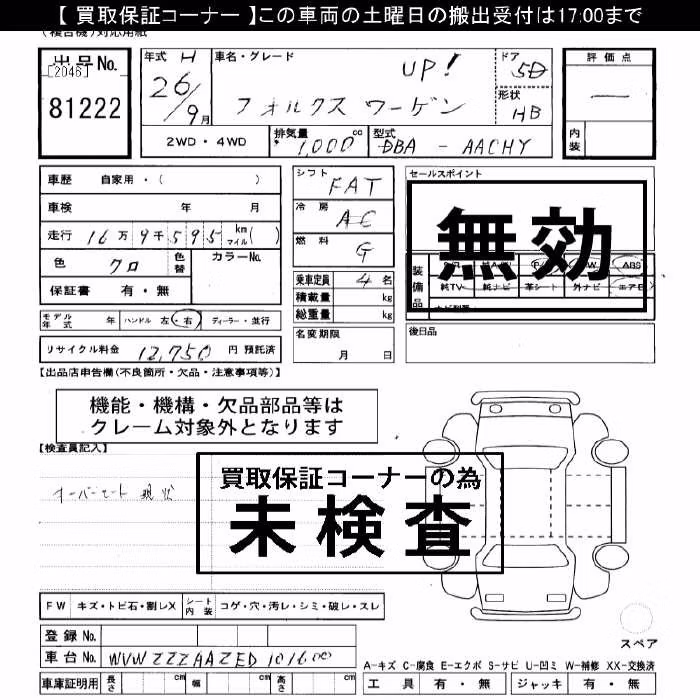 【 買取保証コーナー 】この車両の土曜日の搬出受付は17:00まで
(複合機)対応用紙
出品No.
[2046]
81222
年式 H
26/9月
車名・グレード
UP!
フォルクス ワーゲン
ドア
5D
形状
HB
評価点
—
内装
2WD・4WD
排気量
1,000cc
型式
DBA - AACHY
車歴 自家用・( )
車検 年 月
走行 16万9千595 km マイル( )
色 クロ 色替 カラーNo.
保証書 有・無
シフト FAT
冷房 AC
燃料 G
乗車定員 4名
積載量 kg
総重量 kg
セールスポイント
無効
装備品
ABS
純TV 純ナビ 革シート 外ナビ エアB
モデル年式 年 ハンドル 左・右 ディーラー・並行
リサイクル料金 12,750 円 預託済
名変期限
月 日
後日品
【出品店申告欄(不良箇所・欠品・注意事項等)】
機能・機構・欠品部品等は
クレーム対象外となります
【検査員記入】
オーバーヒート 現状
買取保証コーナーの為
未検査
FW キズ・トビ石・割レX シート内装 コゲ・穴・汚レ・シミ・破レ・スレ
登録No.
車台No. WVWZZZAAZED101600
車庫証明用 長さ cm 幅 cm 高さ cm
スペア
A-キズ C-腐食 E-エクボ S-サビ U-凹ミ W-補修 XX-交換済
工具 有・無 ジャッキ 有・無